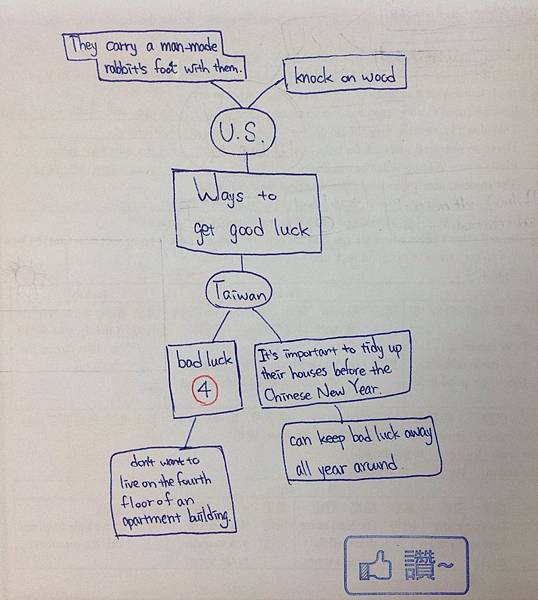 They carry a man-made
rabbit's foot with them.
knock on wood
U.S.
Ways to
get good luck
Taiwan
bad luck
4
It's important to tidy up
their houses before the
Chinese New Year.
don't want to
live on the fourth
floor of an
apartment building.
can keep bad luck away
all year around.
讚~